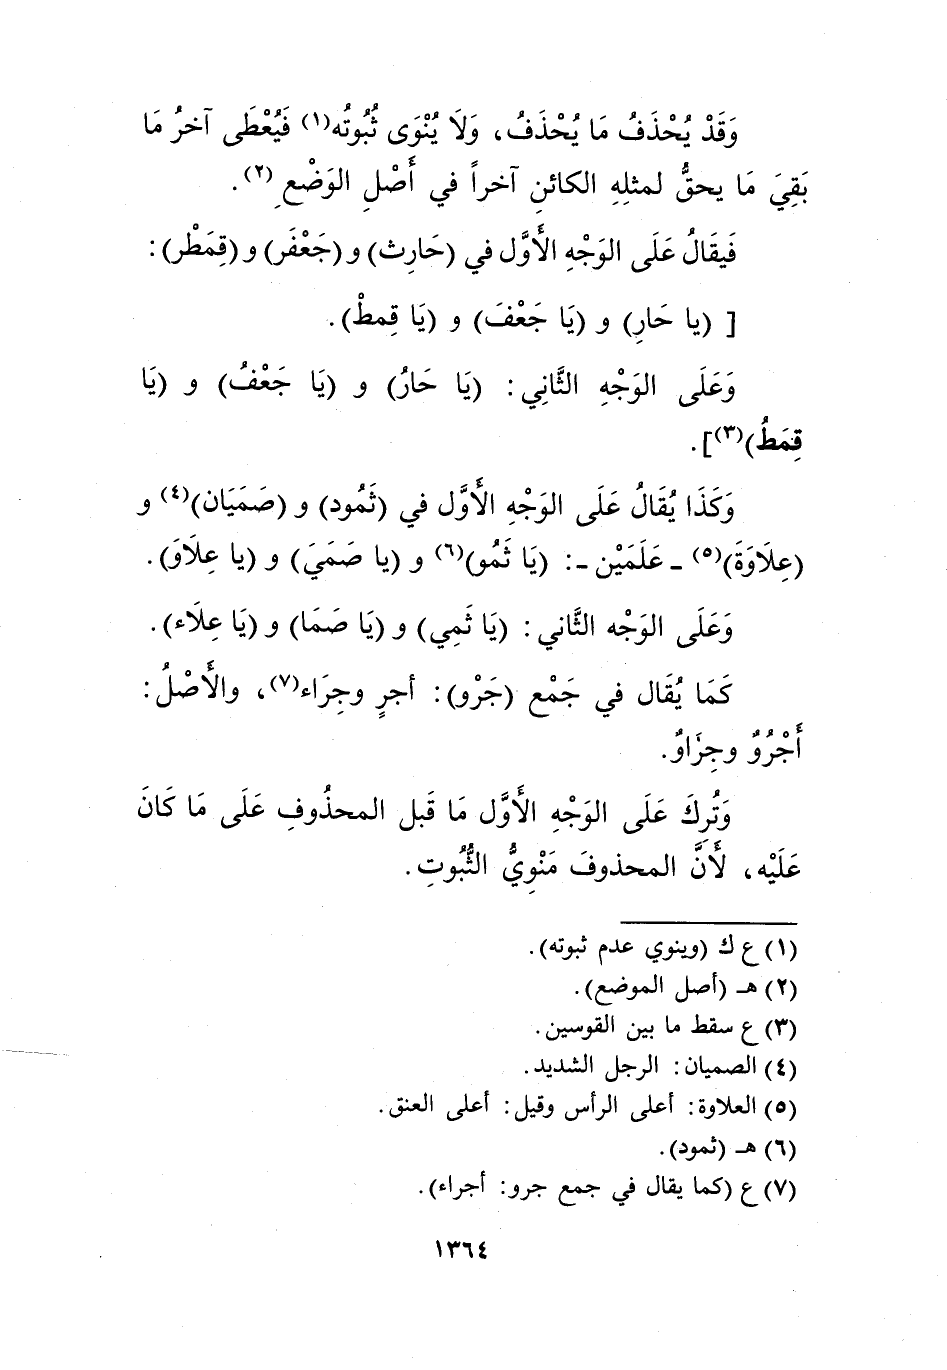 وَقَدْ يُحْذَفُ مَا يُحْذَفُ، وَلَا يُنْوَى ثُبُوتُه(١) فَيُعْطَى آخرُ مَا
بَقِيَ مَا يحقُّ لمثلِهِ الكائنِ آخراً في أَصْلِ الوَضْعِ (٢).
فَيقَالُ عَلَى الوَجْهِ الأَوَّل في (حَارِث) و (جَعْفَر) و (قِمَطْر) :
[ (يا حَارِ) و (يَا جَعْفَ) و (يَا قِمطْ).
وَعَلَى الوَجْهِ الثَّانِي : (يَا حَارُ) و (يَا جَعْفُ) و (يَا
قِمَطُ)(٣)].
وَكَذَا يُقَالُ عَلَى الوَجْهِ الأَوَّل في (ثَمُود) و (صَمَيَان)(٤) و
(عِلَاوَة)(٥) ـ عَلَمَيْن ـ: (يَا ثَمُو)(٦) و (يا صَمَيَ) و (يا عِلَاوَ).
وَعَلَى الوَجْه الثَّاني : (يَا ثَمِي) و (يَا صَمَا) و (يَا عِلَاء).
كَمَا يُقَال في جَمْع (جَرْو): أجرٍ وجِرَاء(٧)، والأَصْلُ:
أَجْرُوٌ وجِرَاوٌ.
وَتُرِكَ عَلَى الوَجْهِ الأَوَّل مَا قَبل المحذُوفِ عَلَى مَا كَانَ
عَلَيْه، لأَنَّ المحذوفَ مَنْوِيُّ الثُّبُوتِ.
(١) ع ك (وينوي عدم ثبوته).
(٢) هـ (أصل الموضع).
(٣) ع سقط ما بين القوسين.
(٤) الصميان: الرجل الشديد.
(٥) العلاوة: أعلى الرأس وقيل: أعلى العنق.
(٦) هـ (ثمود).
(٧) ع (كما يقال في جمع جرو: أجراء).
١٣٦٤